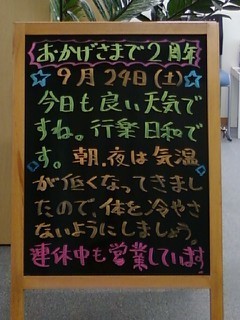 おかげさまで2周年
☆9月24日(土)☆
今日も良い天気で
すね。行楽日和で
す。朝、夜は気温
が低くなってきまし
たので、体を冷やさ
ないようにしましょう。
連休中も営業しています